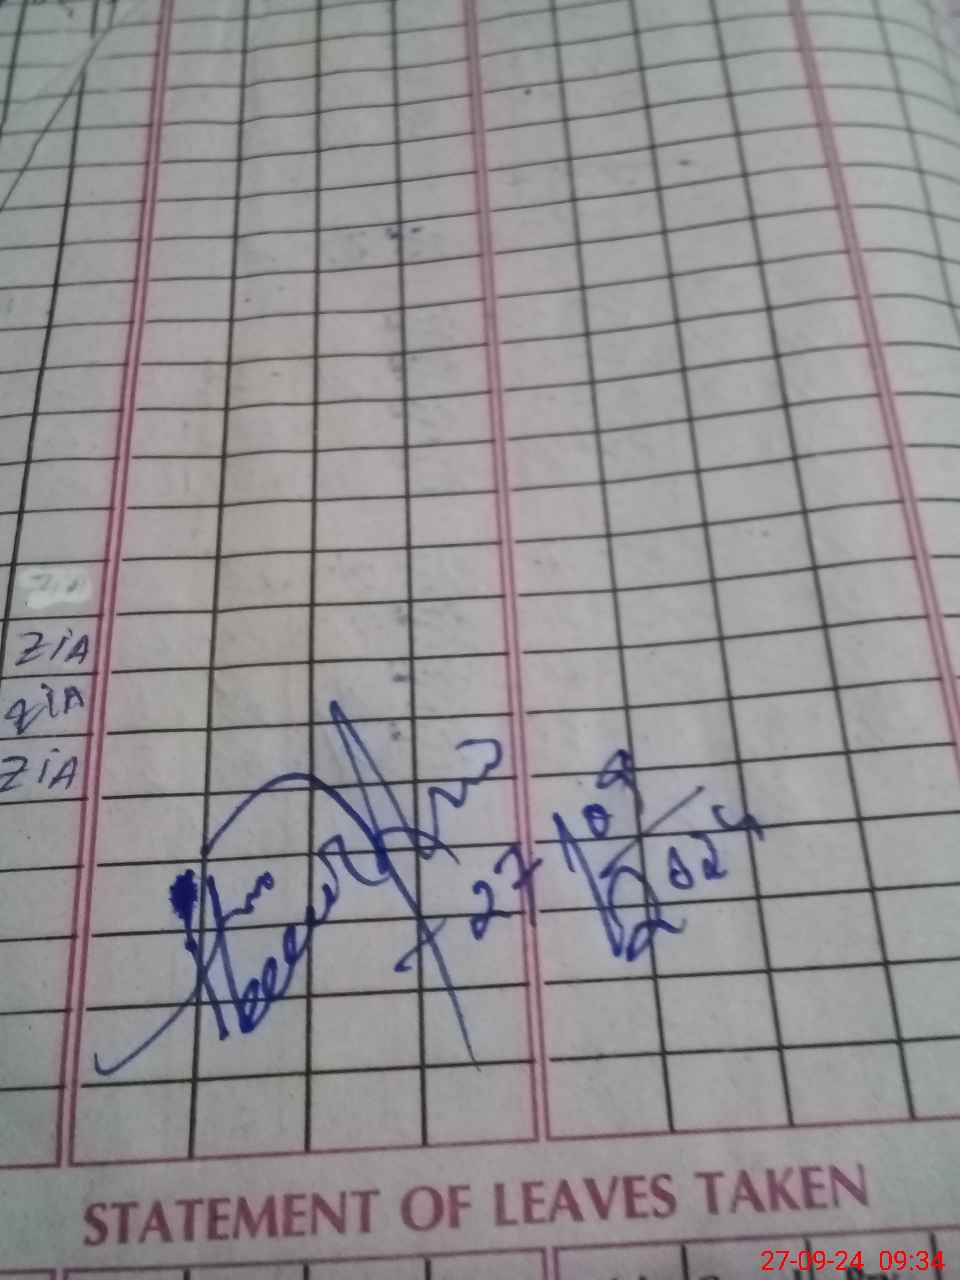 ZiA
ZiA
ZiA
27/09/2024
STATEMENT OF LEAVES TAKEN
27-09-24 09:34